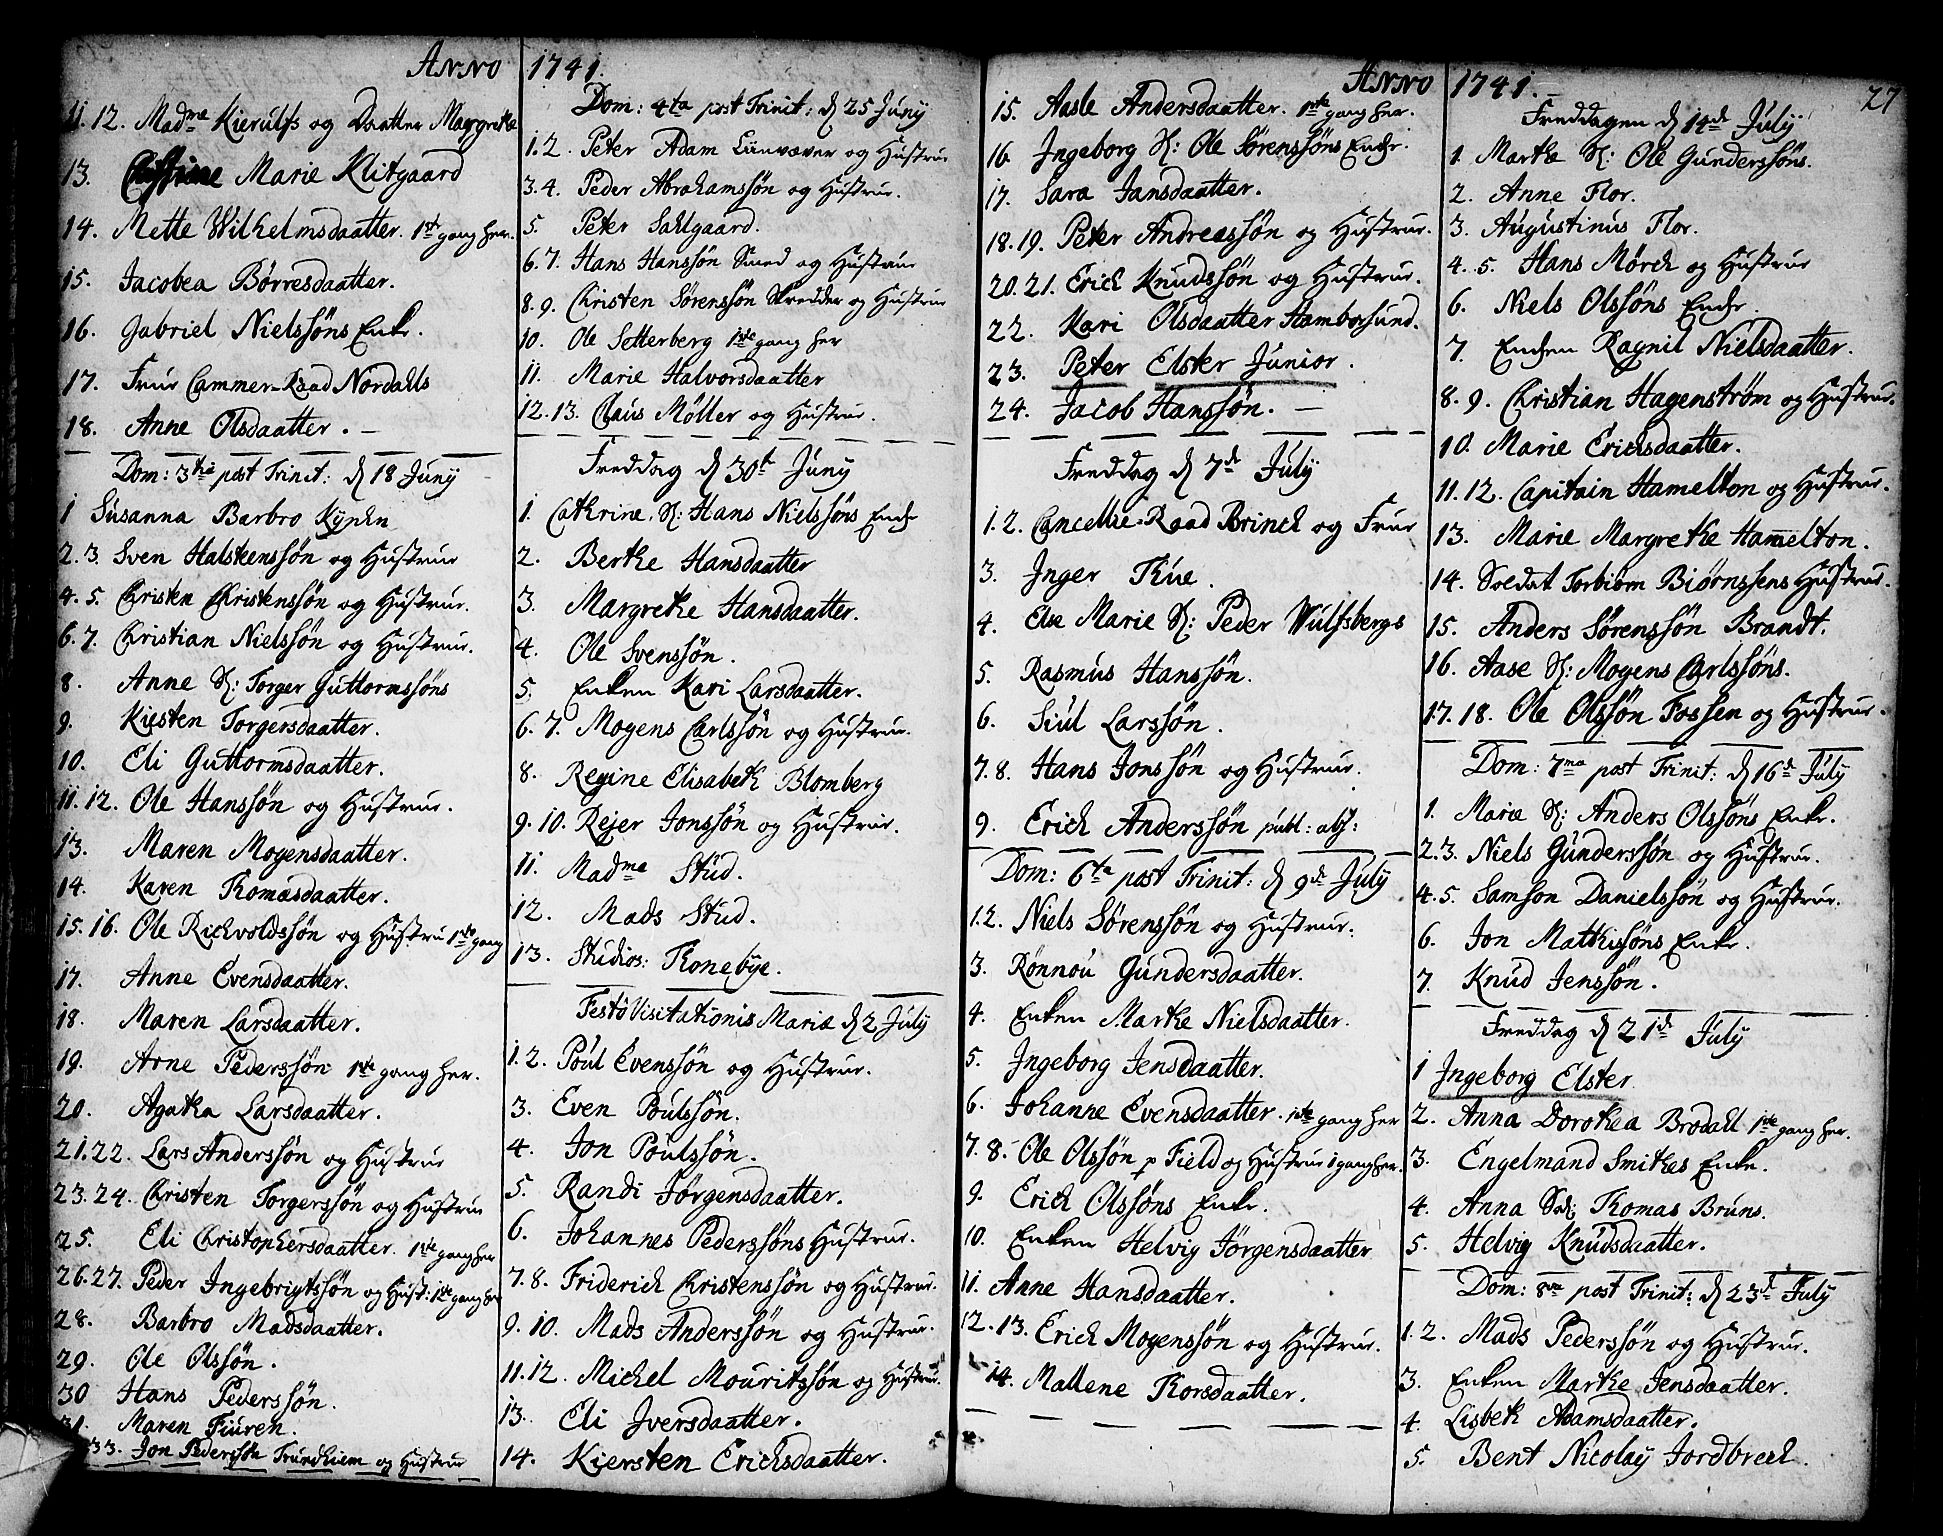 Anno 1741.
11. 12. Madme Kierulfs og Daatter Margrethe
13. Marie Klitgaard
14. Mette Wilhelmsdaatter. 1ste gang her.
15. Jacobea Börresdaatter.
16. Gabriel Nielssöns Enke.
17. Frue Cammer-Raad Nordahls
18. Anne Olsdaatter. —
Dom: 3tia post Trinit: d 18 Junij
1 Susanna Barbro
2. 3. Sven Halstenssön og Hustrue
4. 5. Christen Christenssön og Hustrue.
6. 7. Christian Nielssön og Hustrue.
8. Anne S: Torger Guttormssöns
9. Kiersten Torgersdaatter.
10. Eli Guttormsdaatter.
11. 12. Ole Hanssön og Hustrue.
13. Maren Mogensdaatter.
14. Karen Thomasdaatter.
15. 16. Ole Richvoldssön og Hustru 1ste gang
17. Anne Evensdaatter.
18. Maren Larsdaatter.
19. Arne Pederssön 1ste gang her.
20. Agatha Larsdaatter.
21. 22. Lars Anderssön og Hustrue
23. 24. Christen Torgerssön og Hustrue
25. Eli Christophersdaatter. 1ste gang her
26. 27. Peder Ingebrigtssön og Hust: 1ste gang her
28. Barbro Madsdaatter.
29. Ole Olssön.
30 Hans Pederssön.
31. Maren Fiuren.
33. Jon Pederssön Trundhiem og Hustrue
Dom: 4ta post Trinit: d 25 Junij
1. 2. Peter Adam Linvæver og Hustrue
3. 4. Peder Abrahamssön og Hustrue.
5. Peter Sahlgaard.
6. 7. Hans Hanssön Smed og Hustrue
8. 9. Christen Sörenssön Skredder og Hustrue
10. Ole Setterberg 1ste gang her
11. Marie Halvorsdaatter
12. 13. Claus Möller og Hustrue.
Freddag d 30te Junij
1. Cathrine. S: Hans Nielssöns Enche
2. Berthe Hansdaatter
3. Margrethe Hansdaatter.
4. Ole Svenssön.
5. Enken Kari Larsdaatter.
6. 7. Mogens Carlssön og Hustrue.
8. Regine Elisabeth Blomberg
9. 10. Rejer Jonssön og Hustrue.
11. Madme Stud.
12. Mads Stud.
13. Studios: Thonebye.
Festo Visitationis Mariæ d 2 July
1. 2. Poul Evenssön og Hustrue.
3. Even Poulssön.
4. Jon Poulssön.
5. Randi Jörgensdaatter.
6. Johannes Pederssöns Hustrue.
7. 8. Friderich Christenssön og Hustrue.
9. 10. Mads Anderssön og Hustrue.
11. 12. Michel Mouritssön og Hustrue.
13. Eli Iversdaatter.
14. Kiersten Erichsdaatter.
Anno 1741. —
27
15. Aasle Andersdaatter. 1ste gang her.
16. Ingeborg S: Ole Sörenssöns Enche.
17. Sara Jansdaatter.
18. 19. Peter Andreassön og Hustrue.
20. 21. Erich Knudssön og Hustrue.
22. Kari Olsdaatter Hamborsund.
23. Peter Elster Junior.
24. Jacob Hanssön. —
Freddag d 7de July
1. 2. Cancellie-Raad Brinch og Frue
3. Inger Thue.
4. Else Marie S: Peder Wulfsbergs
5. Rasmus Hanssön.
6. Siul Larssön.
7. 8. Hans Jonssön og Hustrue.
9. Erich Anderssön publ: abs:
Dom: 6ta post Trinit: d 9de July
1. 2. Niels Sörenssön og Hustrue.
3. Rönnou Gundersdaatter.
4. Enken Marthe Nielsdaatter.
5. Ingeborg Jensdaatter.
6. Johanne Evensdaatter. 1ste gang her
7. 8. Ole Olssön p Field og Hustrue 1 gang her.
9. Erich Olssöns Enke.
10. Enken Helvig Jörgensdaatter
11. Anne Hansdaatter.
12. 13. Erich Mogenssön og Hustrue.
14. Mallene Thorsdaatter.
Freddagen d 14de July
1. Marthe S: Ole Gunderssöns.
2. Anne Flor.
3. Augustinus Flor.
4. 5. Hans Mörch og Hustrue
6. Niels Olssöns Enche
7. Enchen Ragnil Nielsdaatter.
8. 9. Christian Hagenström og Hustrue.
10. Marie Erichsdaatter.
11. 12. Capitain Hamelton og Hustrue.
13. Marie Margrethe Hamelton.
14. Soldat Torbiörn Biörnssens Hustrue.
15. Anders Sörenssön Brandt.
16. Aase S: Mogens Carlssöns.
17. 18. Ole Olssön Fossen og Hustrue.
Dom: 7ma post Trinit: d 16de July
1. Marie S: Anders Olssöns Enke.
2. 3. Niels Gunderssön og Hustrue.
4. 5. Samson Danielssön og Hustrue.
6. Jon Mathissöns Enke.
7. Knud Jenssön.
Freddag d 21de July
1 Ingeborg Elster
2. Anna Dorothea Brodahl 1ste gang her.
3. Engelmand Smithes Enke.
4. Anna Thomas Bruns.
5. Helvig Knudsdaatter.
Dom: 8va post Trinit: d 23de July
1. 2. Mads Pederssön og Hustrue.
3. Enken Marthe Jensdaatter.
4. Lisbeth Adamsdaatter.
5. Bent Nicolay Jordbrech.